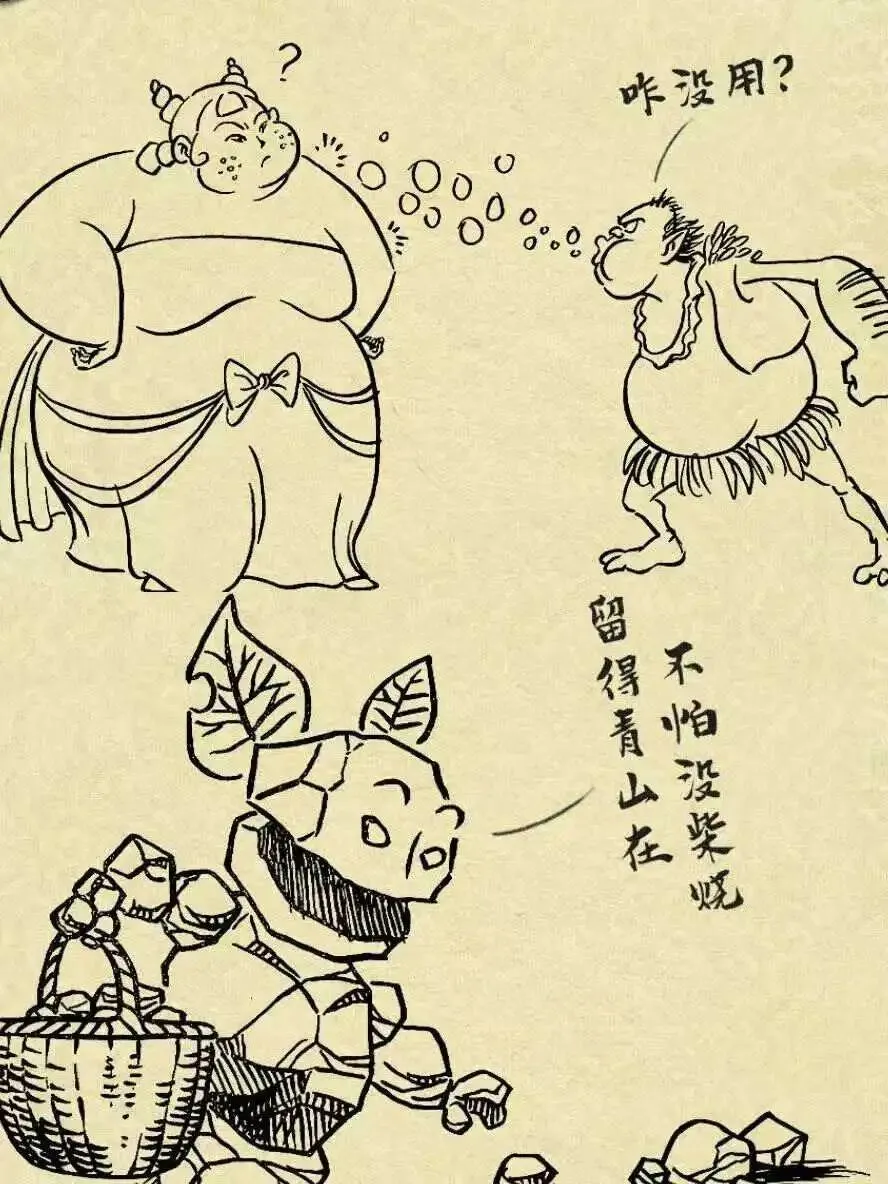 ?
咋没用?
留得青山在
不怕没柴烧